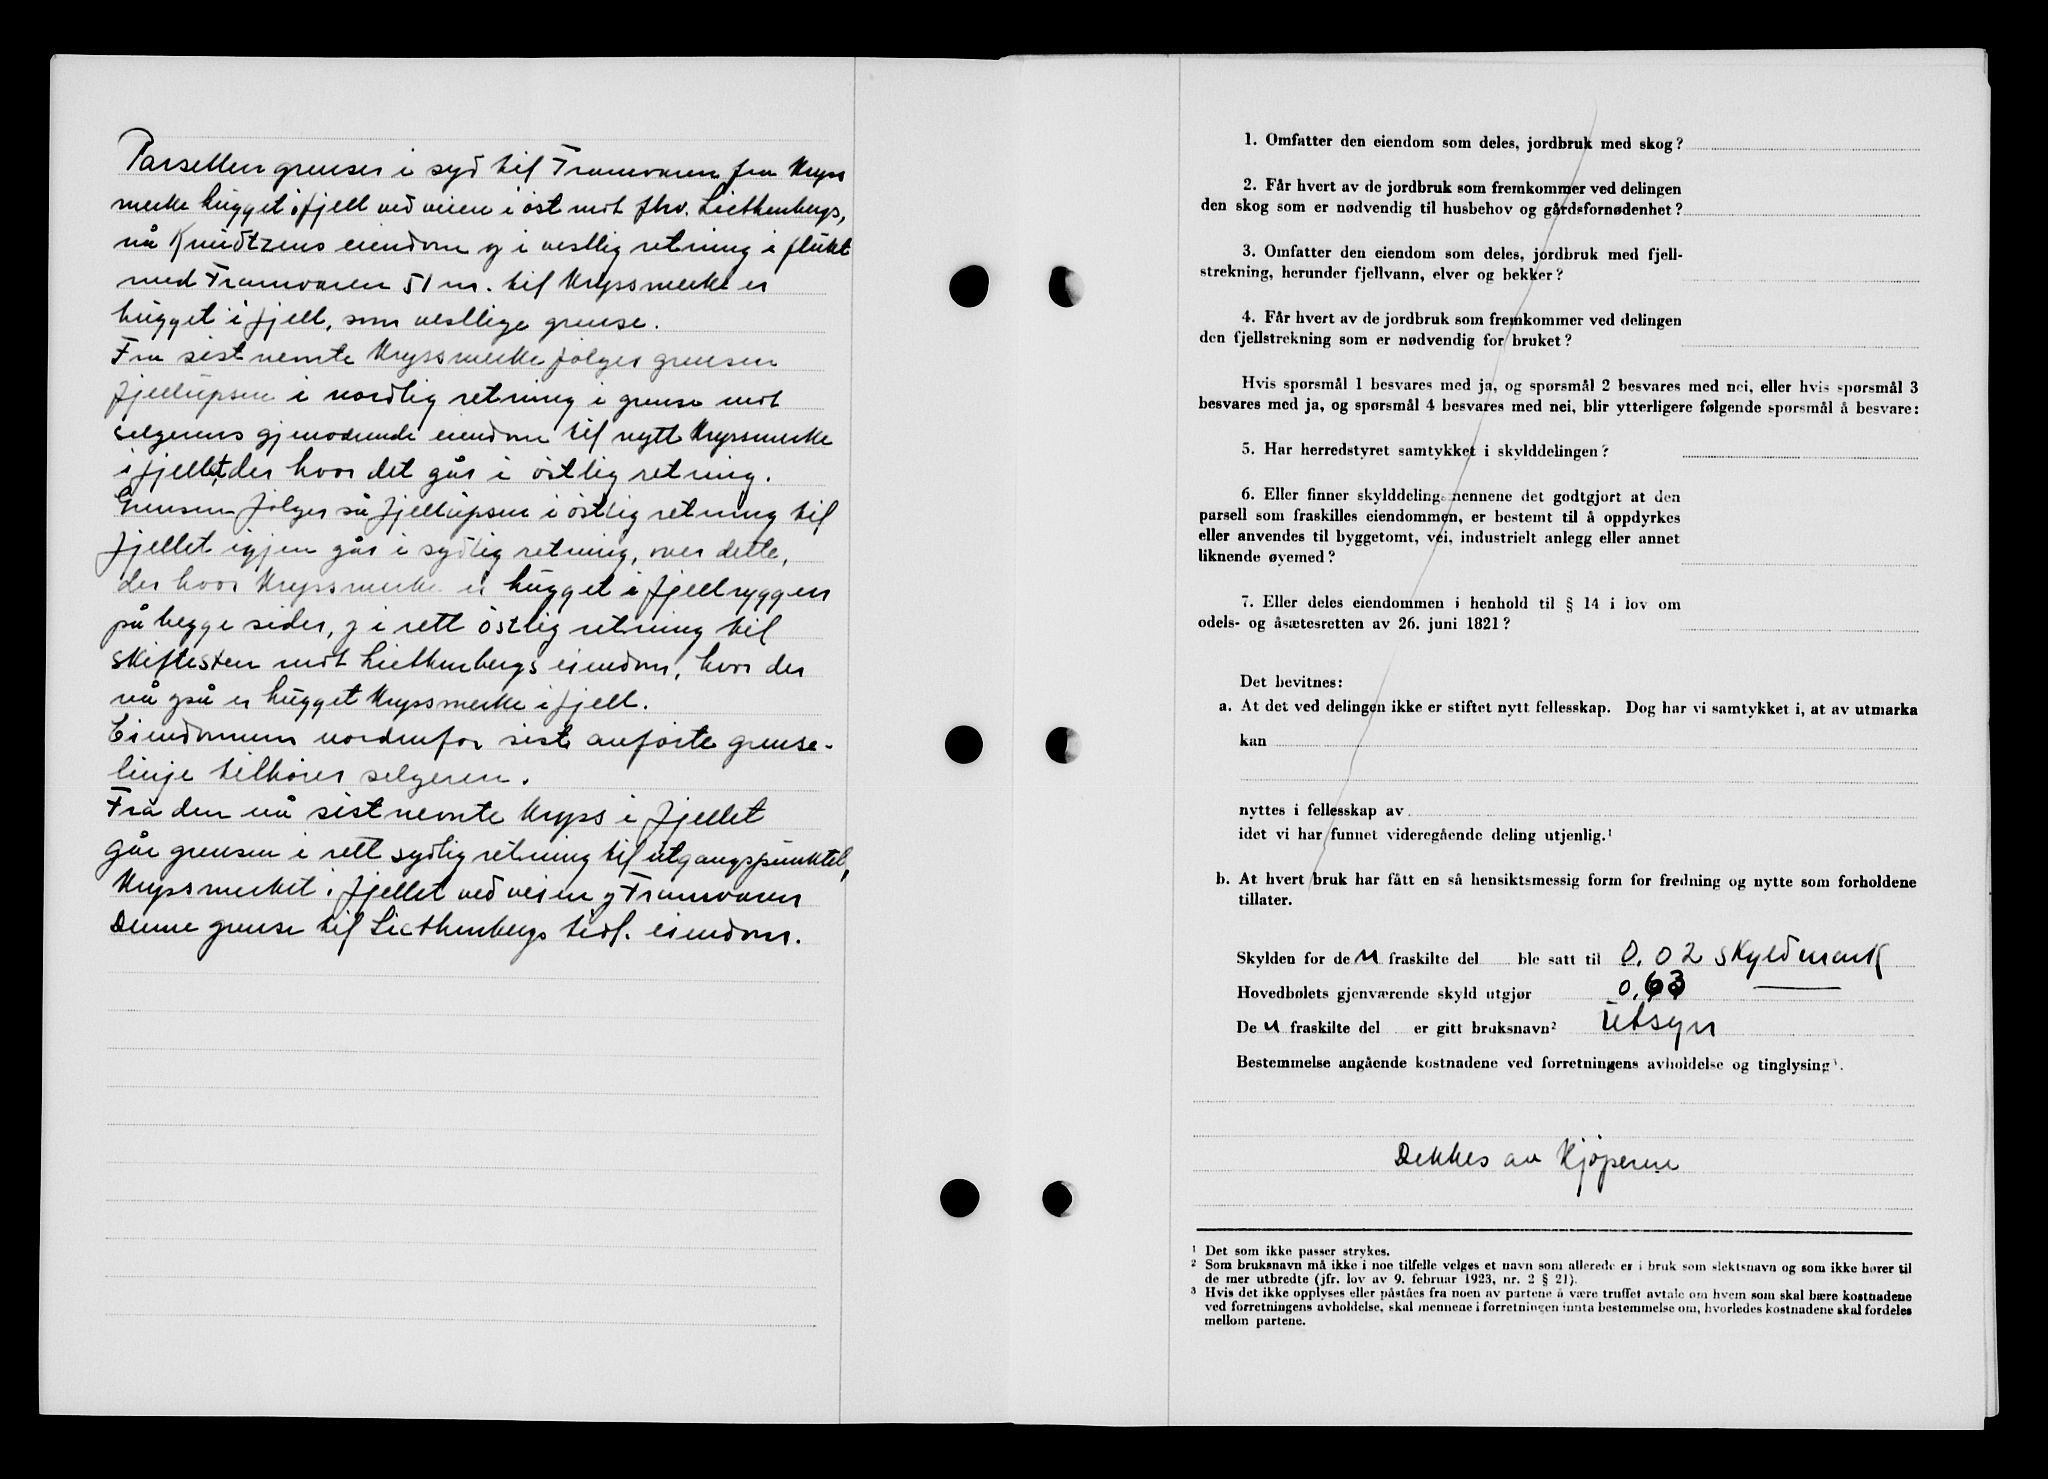 Parsellen grenser i syd til Framvaren fra kryss
merke hugget i fjell ved veien i øst mot fhv. Licthenbergs,
nå Knudtzens eiendom og i vestlig retning i flukt
med Framvaren 51 m. til kryssmerke er
hugget i fjell, som vestlige grense.
Fra sist nevnte kryssmerke følger grensen
fjellupsen i nordlig retning i grense mot
selgerens gjenværende eiendom til nytt kryssmerke
i fjellet, der hvor det går i østlig retning.
Grensen følger så fjellupsen i østlig retning til
fjellet igjen går i sydlig retning, over dette,
der hvor kryssmerke er hugget i fjellryggen
på begge sider, og i rett østlig retning til
skiftesten mot Licthenbergs eiendom, hvor der
nå også er hugget kryssmerke i fjell.
Eiendommen nordenfor sist anførte grense-
linje tilhører selgeren.
Fra den nå sist nevnte kryss i fjellet
går grensen i rett sydlig retning til utgangspunktet,
kryssmerket i fjellet ved veien og Framvaren
Denne grense til Licthenbergs tidl. eiendom.
1. Omfatter den eiendom som deles, jordbruk med skog?
2. Får hvert av de jordbruk som fremkommer ved delingen
den skog som er nødvendig til husbehov og gårdsfornødenhet?
3. Omfatter den eiendom som deles, jordbruk med fjell-
strekning, herunder fjellvann, elver og bekker?
4. Får hvert av de jordbruk som fremkommer ved delingen
den fjellstrekning som er nødvendig for bruket?
Hvis spørsmål 1 besvares med ja, og spørsmål 2 besvares med nei, eller hvis spørsmål 3
besvares med ja, og spørsmål 4 besvares med nei, blir ytterligere følgende spørsmål å besvare:
5. Har herredstyret samtykket i skylddelingen?
6. Eller finner skylddelingsmennene det godtgjort at den
parsell som fraskilles eiendommen, er bestemt til å oppdyrkes
eller anvendes til byggetomt, vei, industrielt anlegg eller annet
liknende øyemed?
7. Eller deles eiendommen i henhold til § 14 i lov om
odels- og åsætesretten av 26. juni 1821?
Det bevitnes:
a. At det ved delingen ikke er stiftet nytt fellesskap. Dog har vi samtykket i, at av utmarka
kan
nyttes i fellesskap av
idet vi har funnet videregående deling utjenlig.¹
b. At hvert bruk har fått en så hensiktsmessig form for fredning og nytte som forholdene
tillater.
Skylden for den fraskilte del ble satt til 0.02 skyldmark
Hovedbølets gjenværende skyld utgjør 0.63
Den fraskilte del er gitt bruksnavn² Utsyn
Bestemmelse angående kostnadene ved forretningens avholdelse og tinglysing³.
Dekkes av kjøperene
¹ Det som ikke passer strykes.
² Som bruksnavn må ikke i noe tilfelle velges et navn som allerede er i bruk som slektsnavn og som ikke hører til
de mer utbredte (jfr. lov av 9. februar 1923, nr. 2 § 21).
³ Hvis det ikke opplyses eller påståes fra noen av partene å være truffet avtale om hvem som skal bære kostnadene
ved forretningens avholdelse, skal mennene i forretningen innta bestemmelse om, hvorledes kostnadene skal fordeles
mellom partene.